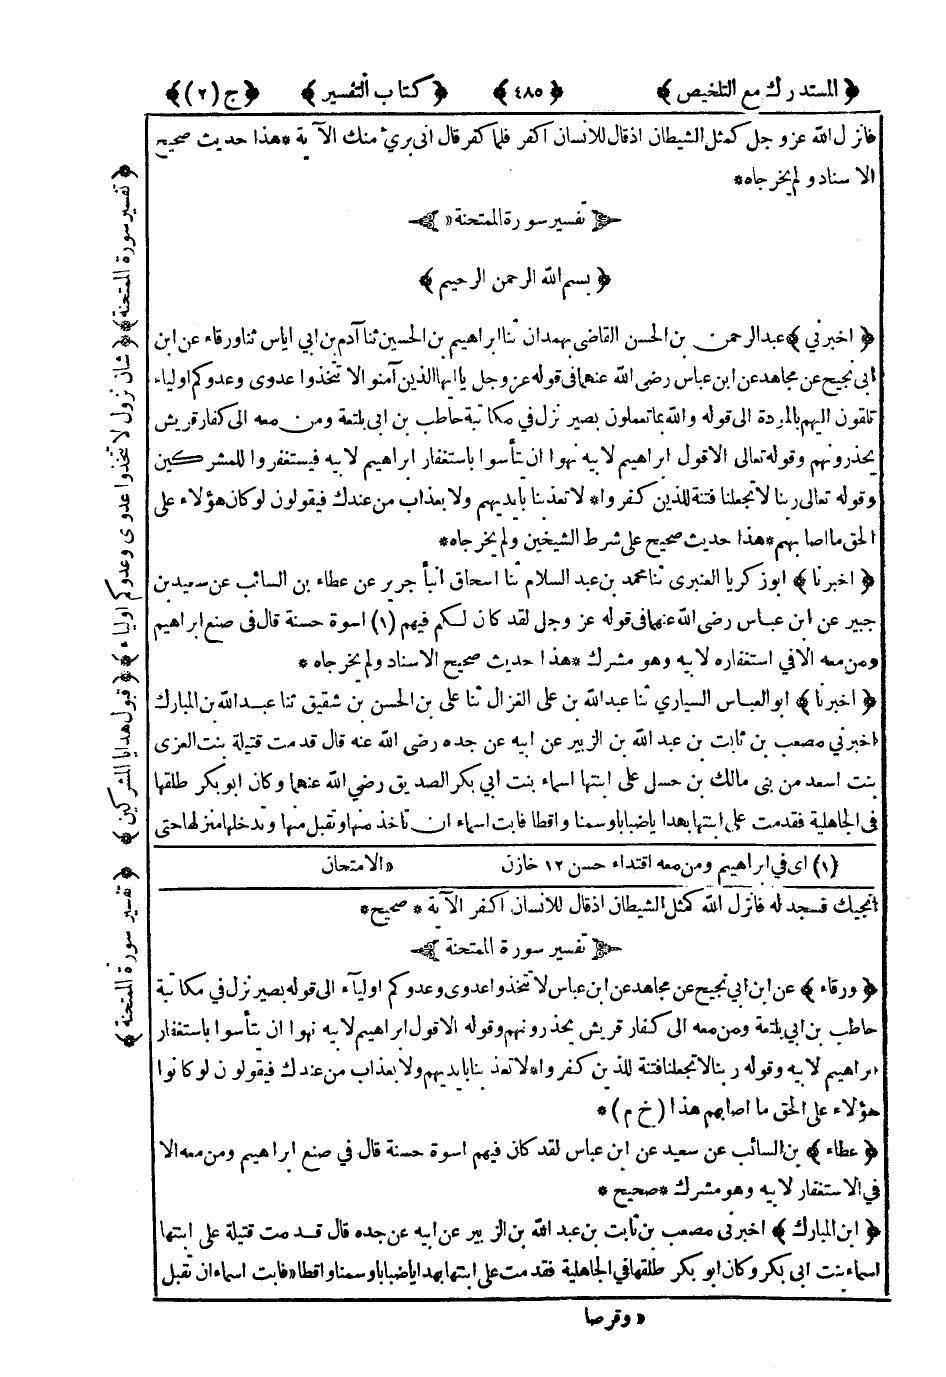 ﴿ المستدرك مع التلخيص ﴾ ﴿ ٤٨٥ ﴾ ﴿ كتاب التفسير ﴾ ﴿ ج (٢) ﴾
فانزل الله عزوجل كمثل الشيطان اذ قال للانسان اكفر فلما كفر قال انى برئ منك الآية * هذا حديث صحيح
الاسناد ولم يخرجاه *
﴿ تفسير سورة الممتحنة ﴾
﴿ بسم الله الرحمن الرحيم ﴾
﴿ اخبرني ﴾ عبدالرحمن بن الحسن القاضى بهمدان ثنا ابراهيم بن الحسين ثنا آدم بن ابي اياس ثنا ورقاء عن ابن
ابى نجيح عن مجاهد عن ابن عباس رضى الله عنهما فى قوله عزوجل يا ايها الذين آمنوا لا تتخذوا عدوى وعدوكم اولياء
تلقون اليهم بالمودة الى قوله والله بما تعملون بصير نزل في مكاتبة حاطب بن ابى بلتعة ومن معه الى كفار قريش
يحذرونهم وقوله تعالى الا قول ابراهيم لابيه نهوا ان يتأسوا باستغفار ابراهيم لابيه فيستغفروا للمشركين
وقوله تعالى ربنا لا تجعلنا فتنة للذين كفروا * لا تعذبنا بايديهم ولا بعذاب من عندك فيقولون لو كان هؤلاء على
الحق ما اصابهم * هذا حديث صحيح على شرط الشيخين ولم يخرجاه *
﴿ اخبرنا ﴾ ابو زكريا العنبرى ثنا محمد بن عبد السلام ثنا اسحاق انبأ جرير عن عطاء بن السائب عن سعيد بن
جبير عن ابن عباس رضى الله عنهما فى قوله عز وجل لقد كان لكم فيهم (١) اسوة حسنة قال فى صنع ابراهيم
ومن معه الا في استغفاره لابيه وهو مشرك * هذا حديث صحيح الاسناد ولم يخرجاه *
﴿ اخبرنا ﴾ ابو العباس السياري ثنا عبدالله بن على الغزال ثنا على بن الحسن بن شقيق ثنا عبدالله بن المبارك
اخبرني مصعب بن ثابت بن عبد الله بن الزبير عن ابيه عن جده رضى الله عنه قال قدمت قتيلة بنت العزى
بنت اسعد من بنى مالك بن حسل على ابنتها اسماء بنت ابي بكر الصديق رضي الله عنهما وكان ابو بكر طلقها
فى الجاهلية فقدمت على ابنتها بهدايا ضبابا وسمنا واقطا فابت اسماء ان تأخذ منها وتقبل منها وتدخلها منزلها حتى
(١) اى في ابراهيم ومن معه اقتداء حسن ١٢ خازن « الامتحان
انجيك فسجد له فانزل الله كمثل الشيطان اذ قال للانسان اكفر الآية * صحيح *
﴿ تفسير سورة الممتحنة ﴾
﴿ ورقاء ﴾ عن ابن ابي نجيح عن مجاهد عن ابن عباس لا تتخذوا عدوى وعدوكم اوليآء الى قوله بصير نزل في مكاتبة
حاطب بن ابي بلتعة ومن معه الى كفار قريش يحذرونهم وقوله الا قول ابراهيم لابيه نهوا ان يتأسوا باستغفار
ابراهيم لابيه وقوله ربنا لا تجعلنا فتنة للذين كفروا * لا تعذبنا بايديهم ولا بعذاب من عندك فيقولون لو كانوا
هؤلاء على الحق ما اصابهم هذا (خ م) *
﴿ عطاء ﴾ بن السائب عن سعيد عن ابن عباس لقد كان فيهم اسوة حسنة قال في صنع ابراهيم ومن معه الا
في الاستغفار لابيه وهو مشرك * صحيح *
﴿ ابن المبارك ﴾ اخبرنى مصعب بن ثابت بن عبد الله بن الزبير عن ابيه عن جده قال قدمت قتيلة على ابنتها
اسماء بنت ابى بكر وكان ابو بكر طلقها في الجاهلية فقدمت على ابنتها بهدايا ضبابا وسمنا واقطا « فابت اسماء ان تقبل
« وقرصا
﴿ تفسير سورة الممتحنة ﴾ * ﴿ شان نزول لا تتخذوا عدوى وعدوكم اولياء ﴾ * ﴿ قبول هدايا المشركين ﴾
﴿ تفسير سورة الممتحنة ﴾